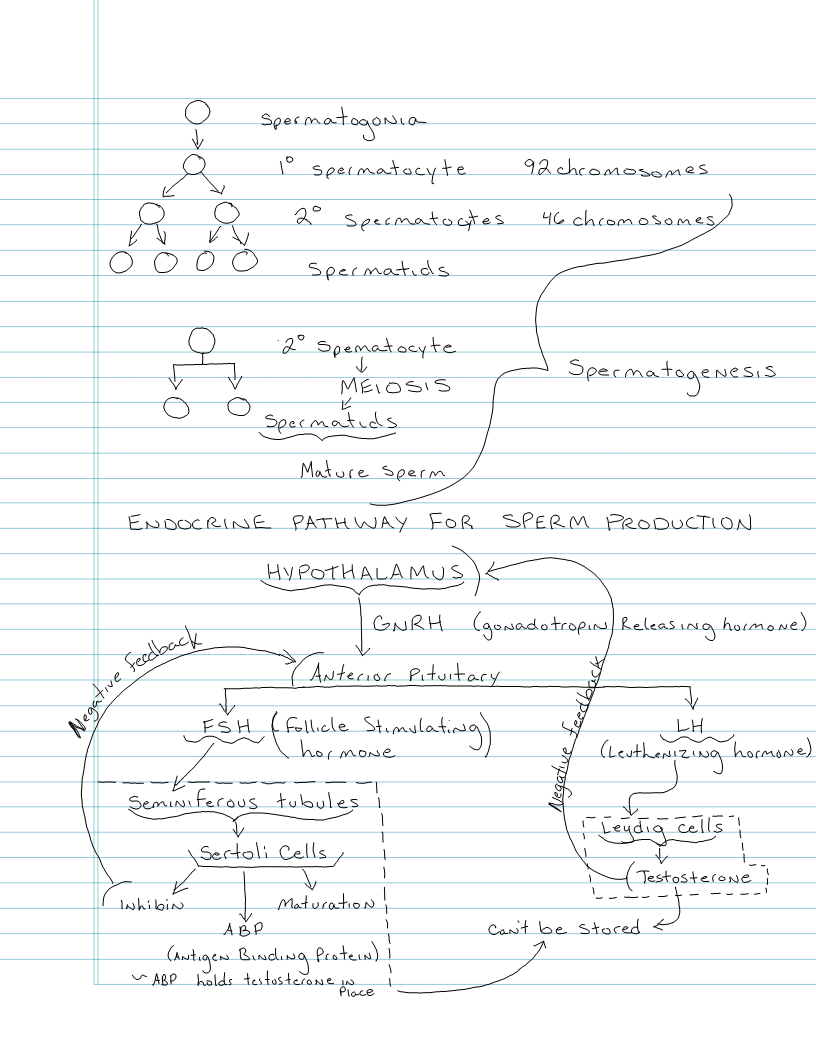 Spermatogonia
1° Spermatocyte 92 chromosomes
2° Spermatocytes 46 chromosomes
Spermatids
2° Spematocyte
MEIOSIS
Spermatids
Spermatogenesis
Mature Sperm
ENDOCRINE PATHWAY FOR SPERM PRODUCTION
HYPOTHALAMUS
GNRH (gonadotropin Releasing hormone)
Negative feedback
Anterior Pituitary
FSH (Follicle Stimulating
hormone)
LH
(Leuthenizing hormone)
Negative feedback
Seminiferous tubules
Leydig cells
Sertoli Cells
Testosterone
Inhibin
Maturation
ABP
Can't be stored
(Antigen Binding Protein)
~ ABP holds testosterone in
Place